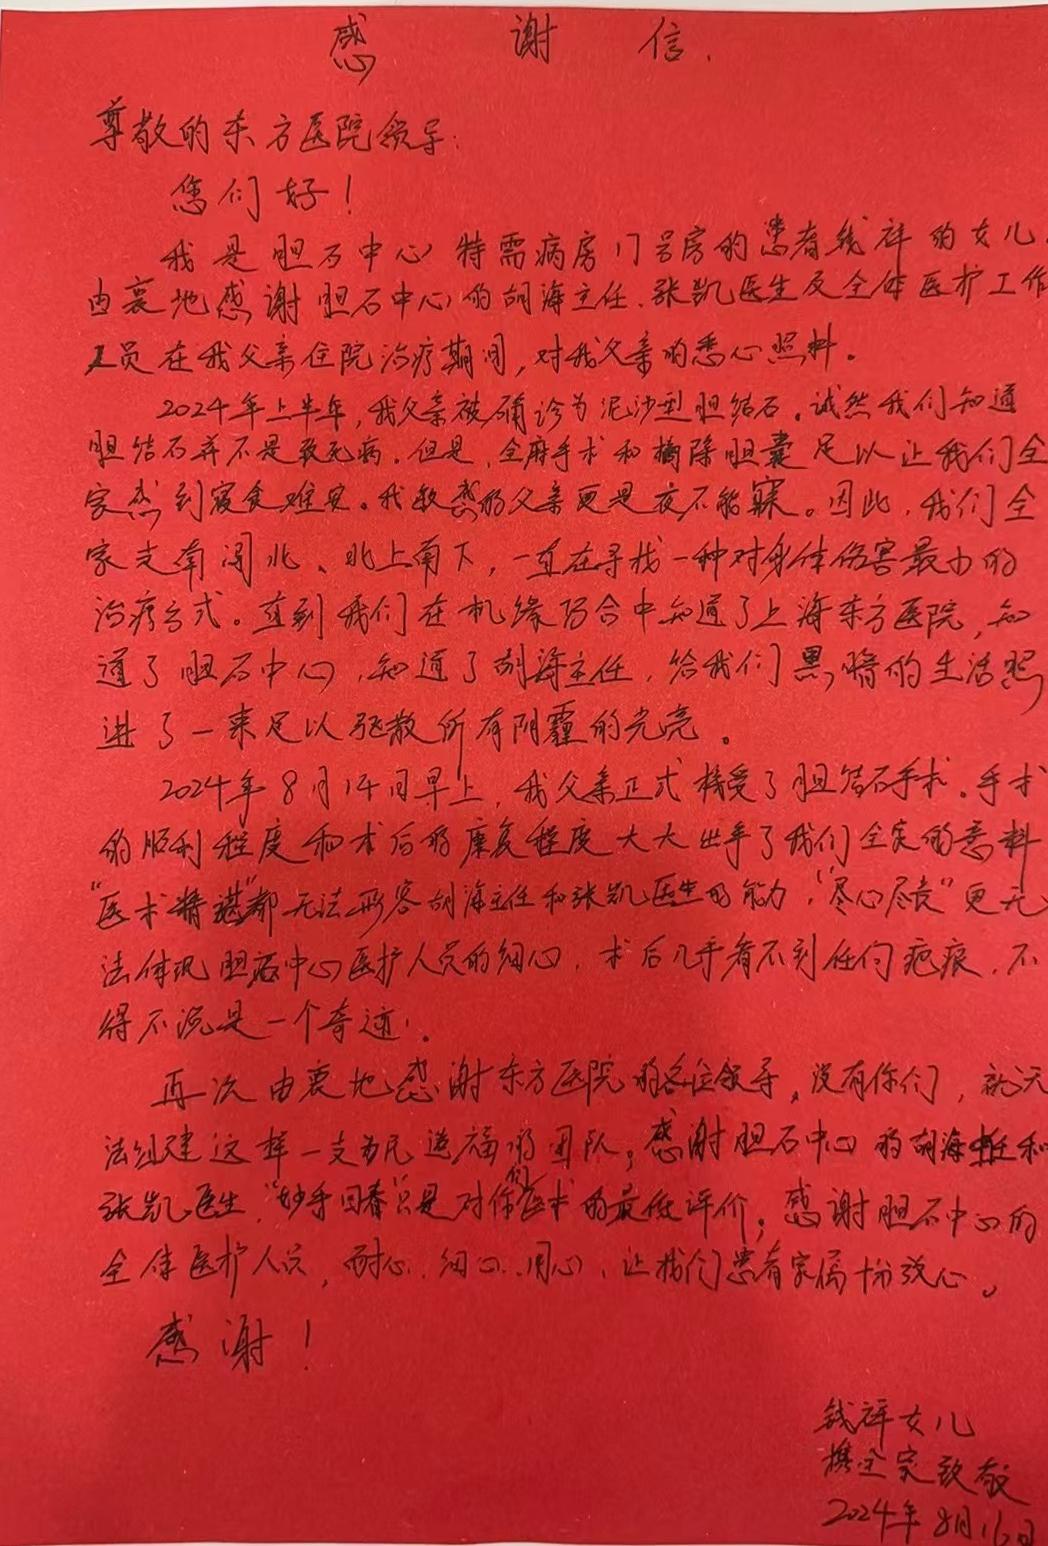 感 谢 信.
尊敬的东方医院领导:
您们好!
我是胆石中心特需病房17号房的患者钱祥的女儿.
由衷地感谢胆石中心的胡海主任、张凯医生及全体医护工作
人员在我父亲住院治疗期间,对我父亲的悉心照料。
2024年上半年,我父亲被确诊为泥沙型胆结石。诚然我们知道
胆结石并不是致死病.但是,全麻手术和摘除胆囊足以让我们全
家感到寝食难安。我敏感的父亲更是夜不能寐。因此,我们全
家走南闯北、北上南下,一直在寻找一种对身体伤害最小的
治疗方式。直到我们在机缘巧合中知道了上海东方医院,知
道了胆石中心,知道了胡海主任,给我们黑暗的生活照
进了一束足以驱散所有阴霾的光亮。
2024年8月14日早上,我父亲正式接受了胆结石手术。手术
的顺利程度和术后的康复程度大大出乎了我们全家的意料
"医术精湛"都无法形容胡海主任和张凯医生的能力,"尽心尽责"更无
法体现胆石中心医护人员的细心,术后几乎看不到任何疤痕,不
得不说是一个奇迹!.
再次由衷地感谢东方医院的各位领导,没有你们,就无
法组建这样一支为民造福的团队;感谢胆石中心的胡海主任和
张凯医生,"妙手回春"只是对你们医术的最低评价;感谢胆石中心的
全体医护人员,耐心、细心、用心,让我们患者家属十分放心。
感谢!
钱祥女儿
携全家致敬
2024年8月16日